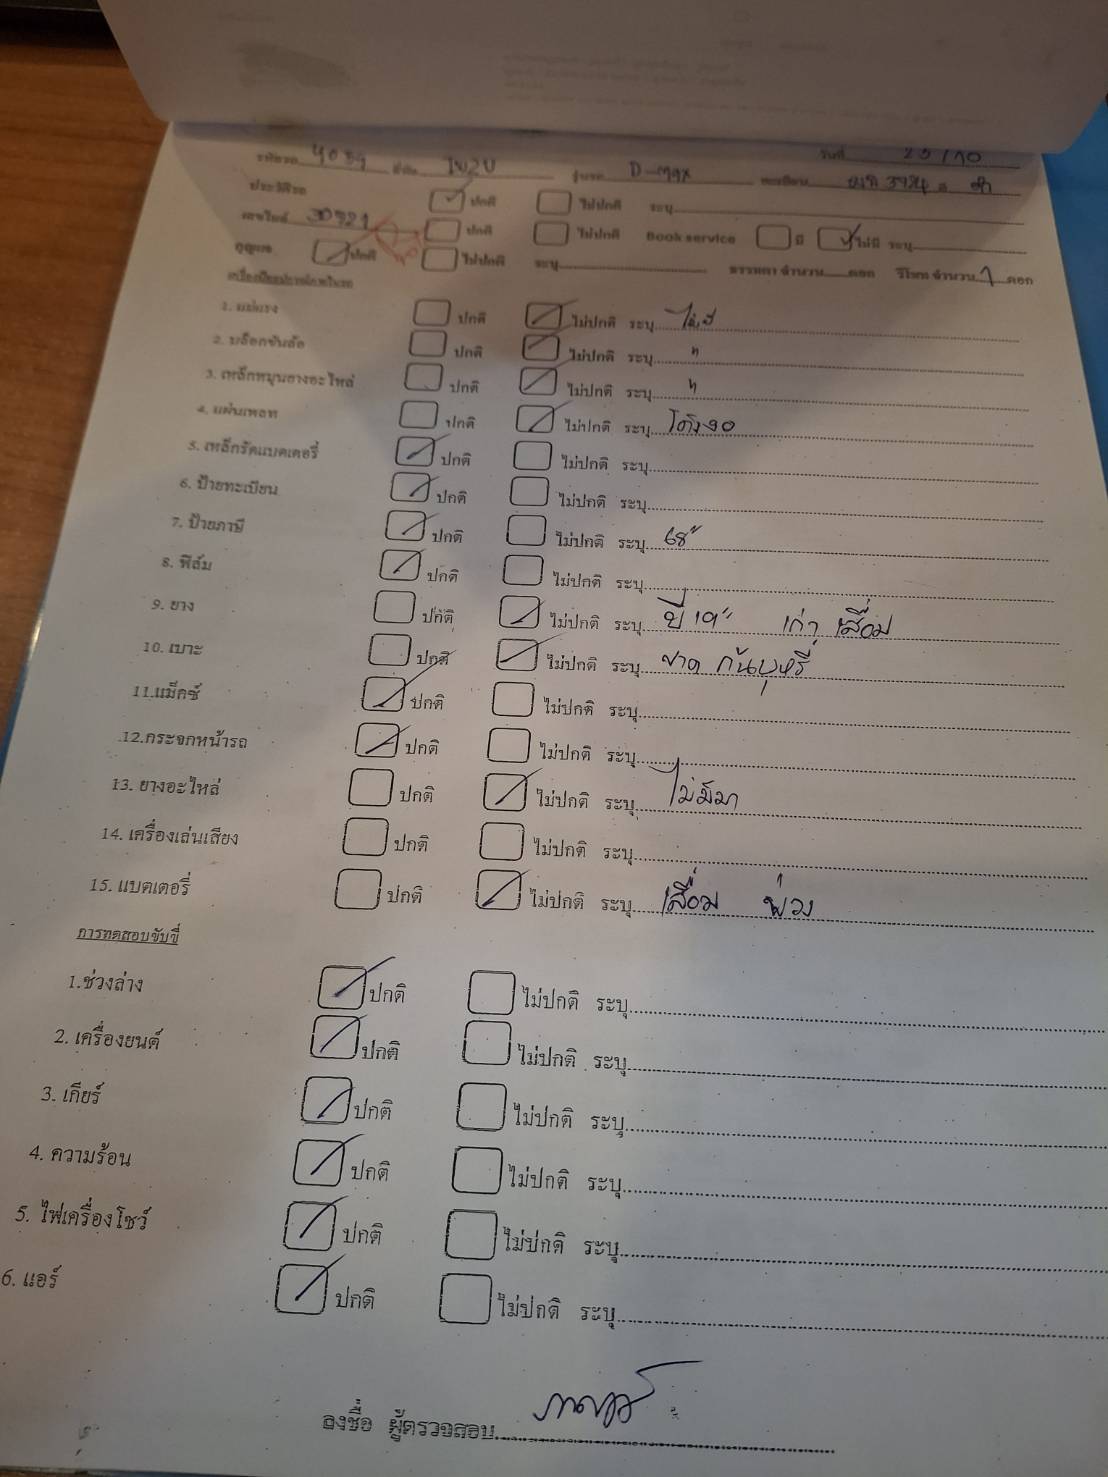 รหัสรถ 4054 ยี่ห้อ ISUZU รุ่นรถ D-MAX ทะเบียน 3924 วันที่ 25/10
ประวัติรถ ปกติ ไม่ปกติ ระบุ
เลขไมล์ 30921 ปกติ ไม่ปกติ Book service มี ไม่มี ระบุ
กุญแจ ปกติ ไม่ปกติ ระบุ ธรรมดา จำนวน ดอก รีโมท จำนวน 1 ดอก
1. แม่แรง ปกติ ไม่ปกติ ระบุ ไม่มี
2. บล็อกขันล้อ ปกติ ไม่ปกติ ระบุ "
3. เหล็กหมุนยางอะไหล่ ปกติ ไม่ปกติ ระบุ "
4. แผ่นเพลท ปกติ ไม่ปกติ ระบุ โก่งงอ
5. เหล็กรัดแบตเตอรี่ ปกติ ไม่ปกติ ระบุ
6. ป้ายทะเบียน ปกติ ไม่ปกติ ระบุ
7. ป้ายภาษี ปกติ ไม่ปกติ ระบุ 68"
8. ฟิล์ม ปกติ ไม่ปกติ ระบุ
9. ยาง ปกติ ไม่ปกติ ระบุ ปี 19" เก่า เสื่อม
10. เบาะ ปกติ ไม่ปกติ ระบุ ขาด ก้นบุหรี่
11.แม็กซ์ ปกติ ไม่ปกติ ระบุ
12.กระจกหน้ารถ ปกติ ไม่ปกติ ระบุ
13. ยางอะไหล่ ปกติ ไม่ปกติ ระบุ ไม่มีมา
14. เครื่องเล่นเสียง ปกติ ไม่ปกติ ระบุ
15. แบตเตอรี่ ปกติ ไม่ปกติ ระบุ เสื่อม พ่วง
การทดสอบขับขี่
1.ช่วงล่าง ปกติ ไม่ปกติ ระบุ
2. เครื่องยนต์ ปกติ ไม่ปกติ ระบุ
3. เกียร์ ปกติ ไม่ปกติ ระบุ
4. ความร้อน ปกติ ไม่ปกติ ระบุ
5. ไฟเครื่องโชว์ ปกติ ไม่ปกติ ระบุ
6. แอร์ ปกติ ไม่ปกติ ระบุ
ลงชื่อ ผู้ตรวจสอบ